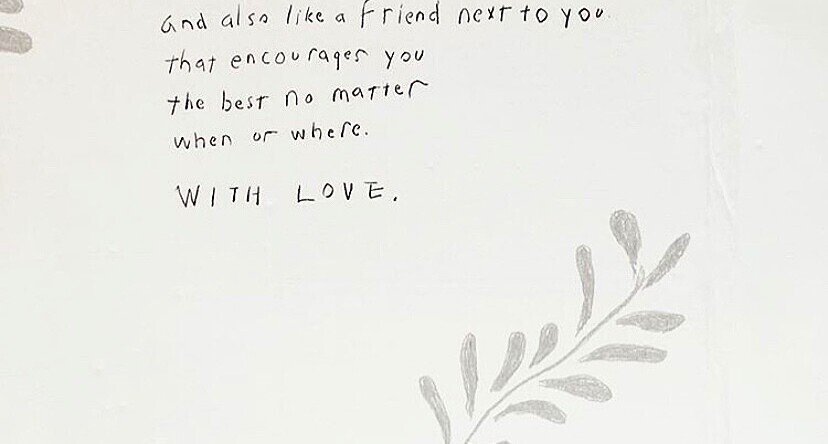 and also like a friend next to you
that encourages you
the best no matter
when or where.
WITH LOVE.